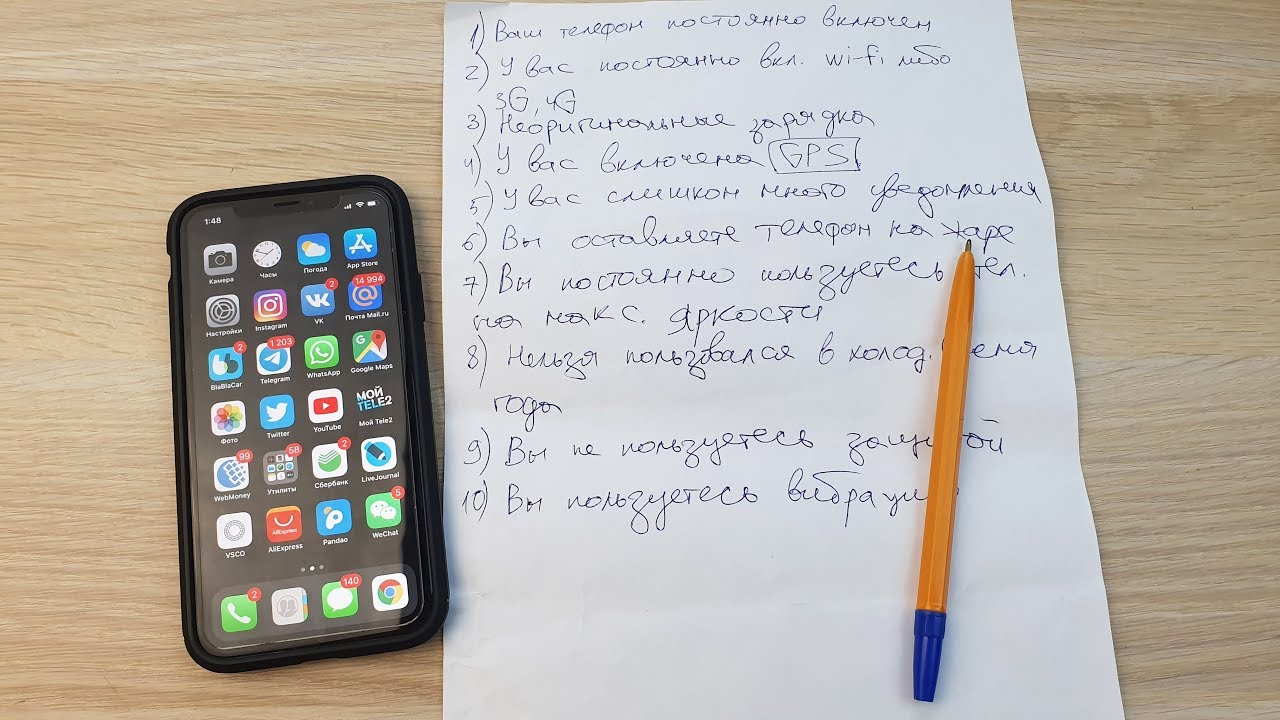 1:48
Камера
Часы
Погода
App Store
Настройки
Instagram
2
VK
14 994
Почта Mail.ru
2
BlaBlaCar
1 203
Telegram
WhatsApp
Google Maps
Фото
Twitter
YouTube
МОЙ
TELE2
Мой Tele2
99
WebMoney
58
Утилиты
2
Сбербанк
LiveJournal
VSCO
AliExpress
Pandao
5
WeChat
2
140
1) Ваш телефон постоянно включен
2) У вас постоянно вкл. wi-fi либо
3G, 4G
3) Неоригинальные зарядка
4) У вас включена GPS
5) У вас слишком много уведомления
6) Вы оставляете телефон на жаре
7) Вы постоянно пользуетесь тел.
на макс. яркости
8) Нельзя пользвался в холод.
года
9) Вы не пользуетесь
10) Вы пользуетесь